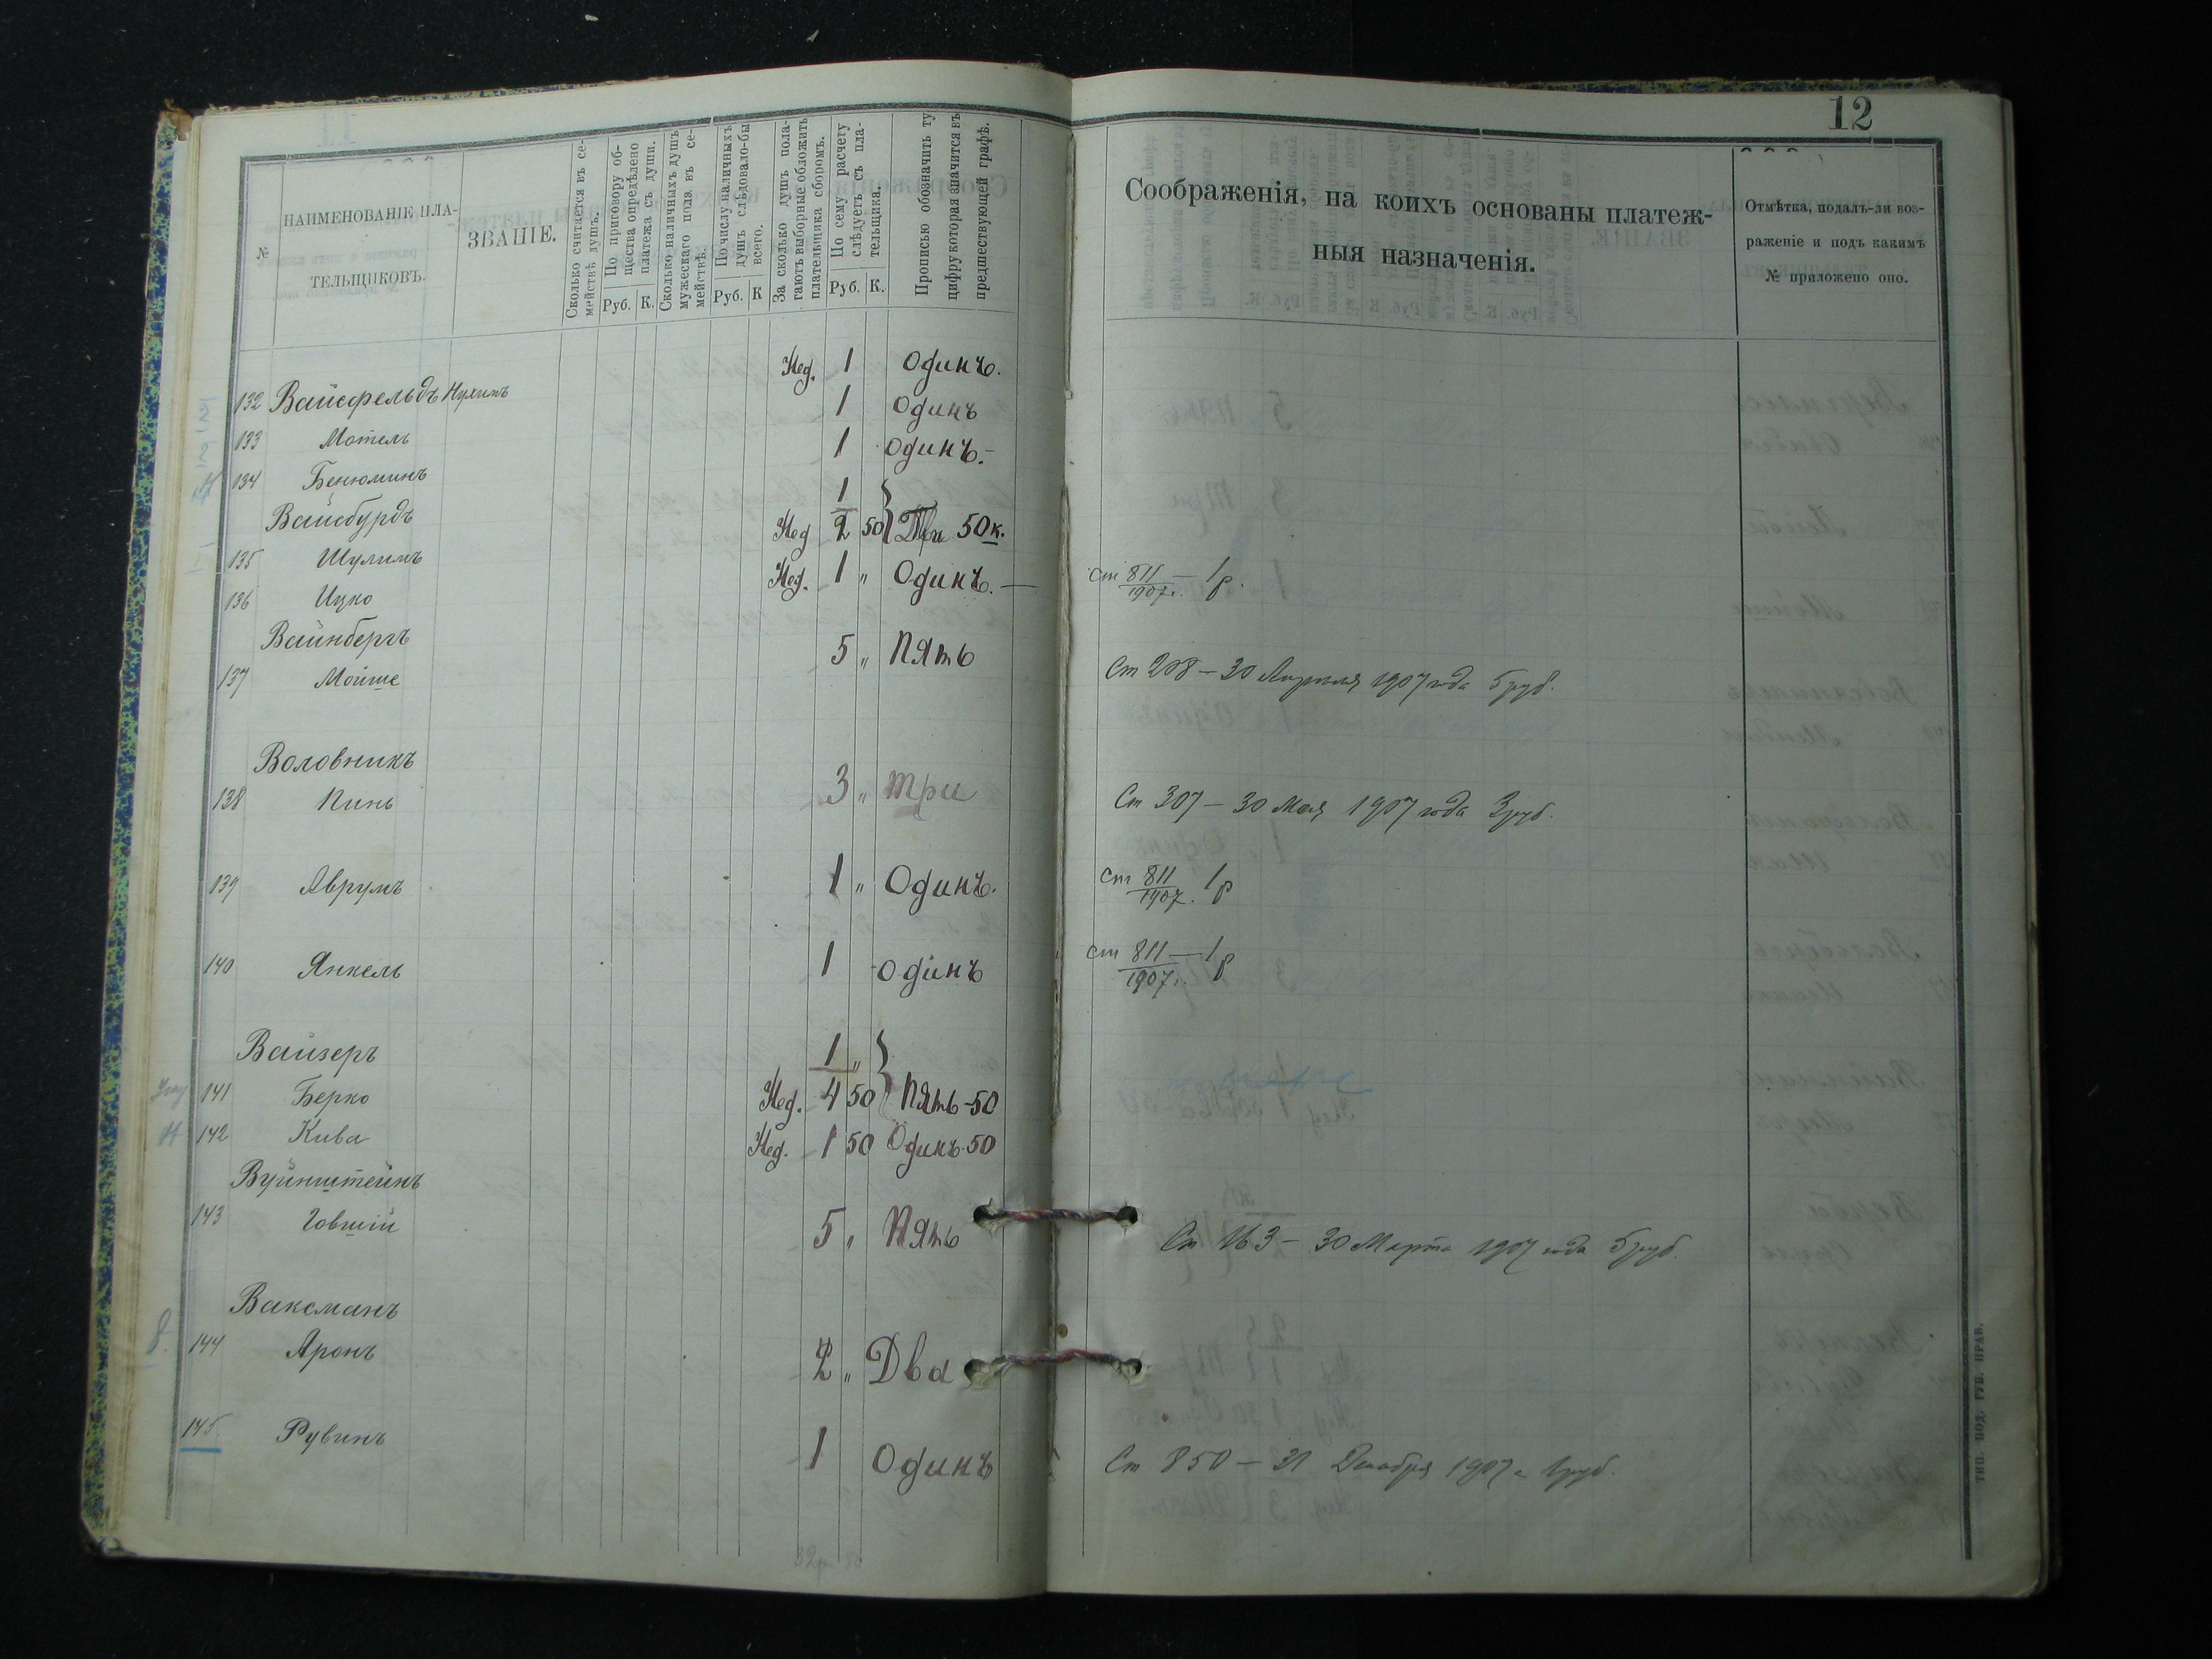 12
№
НАИМЕНОВАНІЕ ПЛА-
ТЕЛЬЩИКОВЪ.
ЗВАНІЕ.
Сколько считается въ се-
мействѣ душъ.
По приговору об-
щества опредѣлено
платежа съ души.
Руб. К.
Сколько наличныхъ душъ
мужескаго пола въ се-
мействѣ.
По числу наличныхъ
душъ слѣдовало-бы
всего.
Руб. К
За сколько душъ пола-
гаютъ выборные обложить
плательщика сборомъ.
По сему расчету
слѣдуетъ съ пла-
тельщика.
Руб. К.
Прописью обозначить ту
цифру которая значится въ
предшествующей графѣ.
Соображенія, на коихъ основаны платеж-
ныя назначенія.
Отмѣтка, подалъ-ли воз-
раженіе и подъ какимъ
№ приложено оно.
Нед. 1 Одинъ.
132 Вайсфельдъ Нухимъ 1 Одинъ
133 Мотель 1 Одинъ.-
134 Бенюминъ 1
Вайсбурдъ Нед 2 50 Три 50 к.
135 Шулимъ Нед. 1 „ Одинъ. — ст 811/1907г. — 1 р.
136 Ицко
Вайнбергъ 5 „ Пять
137 Мойше Ст 208 – 30 Апрѣля 1907 года 5 руб.
Воловникъ
138 Пинь 3 „ три Ст 307 – 30 Мая 1907 года 3 руб.
139 Аврумъ 1 „ Одинъ. ст 811/1907. 1 р
140 Янкель 1 одинъ ст 811/1907г. — 1 р
Вайзеръ 1 „
141 Берко Нед. 4 50 Пять-50
142 Кива Нед. 1 50 Одинъ-50
Вуйнштейнъ
143 Говшій 5 „ Пять Ст 163 – 30 Марта 1907 года 5 руб.
Ваксманъ
8. 144 Аронъ 2 „ Два
145 Рувинъ 1 Одинъ Ст 850 – 31 Декабря 1907 г 1 руб.
ТИП. ПОД. ГУБ. ПРАВ.